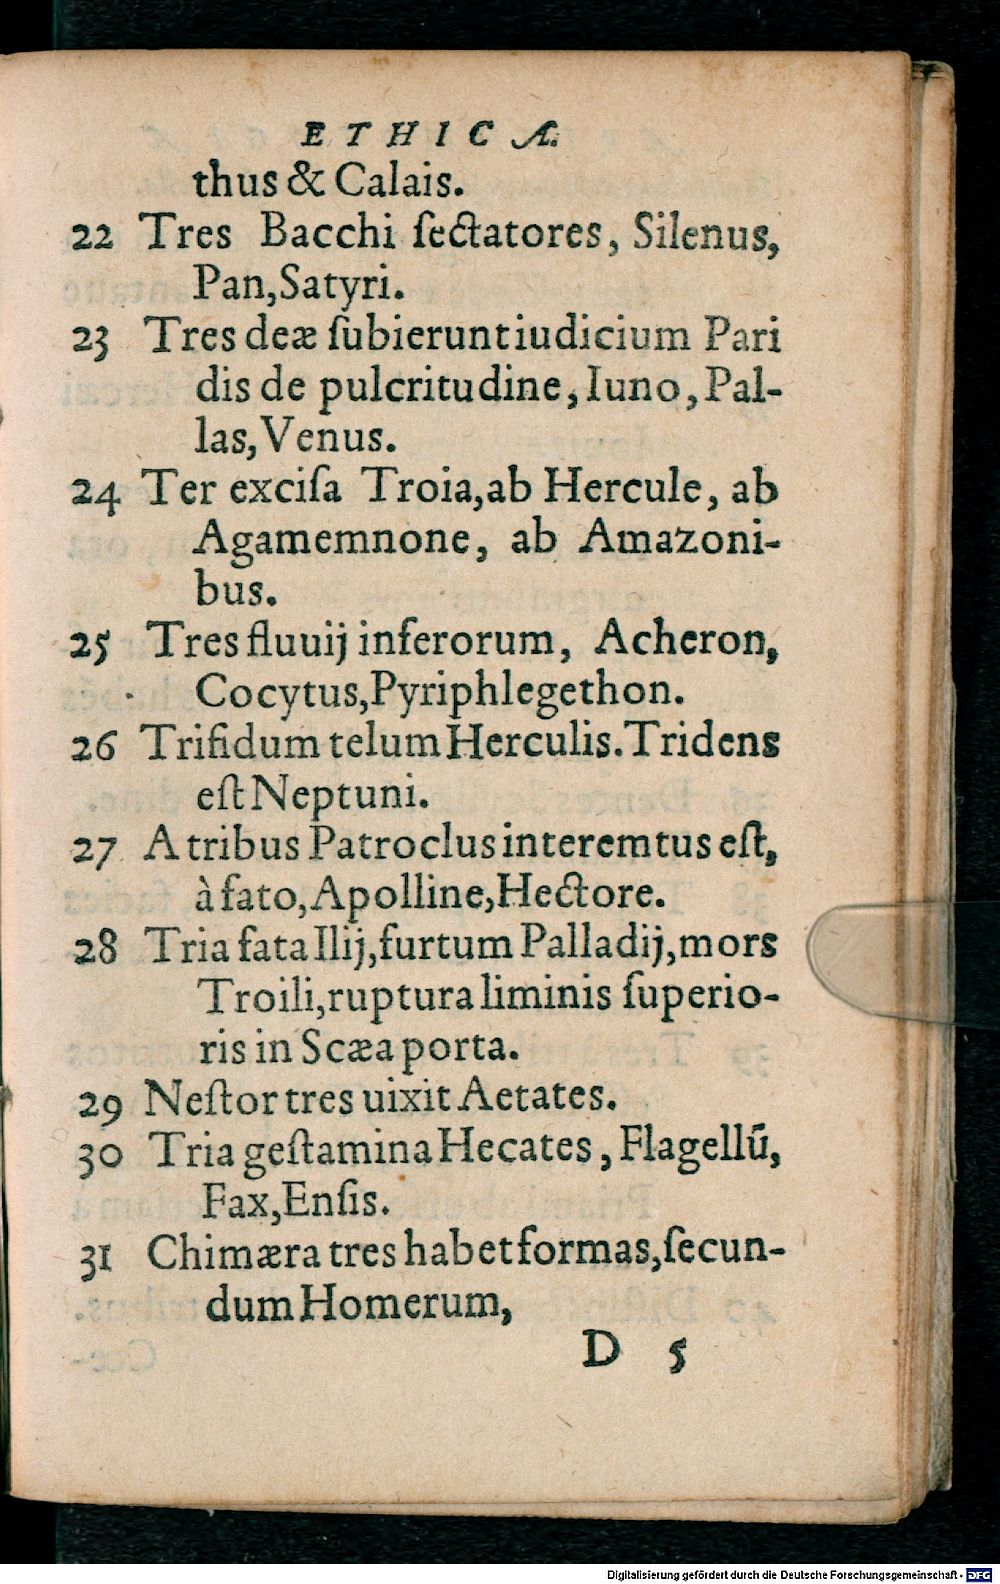 ETHICÆ.
thus & Calais.
22 Tres Bacchi ſectatores, Silenus,
Pan, Satyri.
23 Tres deæ ſubierunt iudicium Pari
dis de pulcritudine, Iuno, Pal-
las, Venus.
24 Ter exciſa Troia, ab Hercule, ab
Agamemnone, ab Amazoni-
bus.
25 Tres fluuij inferorum, Acheron,
Cocytus, Pyriphlegethon.
26 Trifidum telum Herculis. Tridens
eſt Neptuni.
27 A tribus Patroclus interemtus eſt,
à fato, Apolline, Hectore.
28 Tria fata Ilij, furtum Palladij, mors
Troili, ruptura liminis ſuperio-
ris in Scæa porta.
29 Neſtor tres uixit Aetates.
30 Tria geſtamina Hecates, Flagellū,
Fax, Enſis.
31 Chimæra tres habet formas, ſecun-
dum Homerum,
D 5
Digitalisierung gefördert durch die Deutsche Forschungsgemeinschaft - DFG